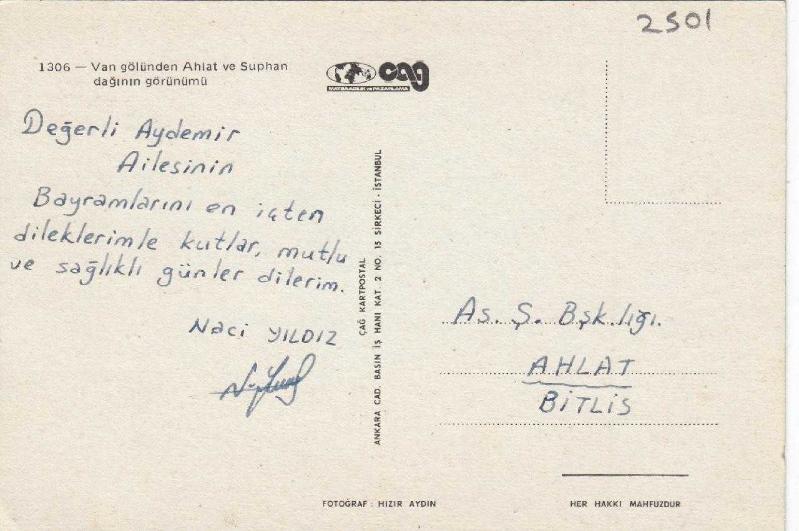 2501
1306 — Van gölünden Ahlat ve Suphan
dağının görünümü
cag
MATBAACILIK ve PAZARLAMA
Değerli Aydemir
Ailesinin
Bayramlarını en içten
dileklerimle kutlar, mutlu
ve sağlıklı günler dilerim.
Naci YILDIZ
ÇAĞ KARTPOSTAL
ANKARA CAD. BASIN İŞ HANI KAT. 2 NO. 15 SİRKECİ - İSTANBUL
As. Ş. Bşk.lığı.
AHLAT
BİTLİS
FOTOĞRAF : HIZIR AYDIN
HER HAKKI MAHFUZDUR